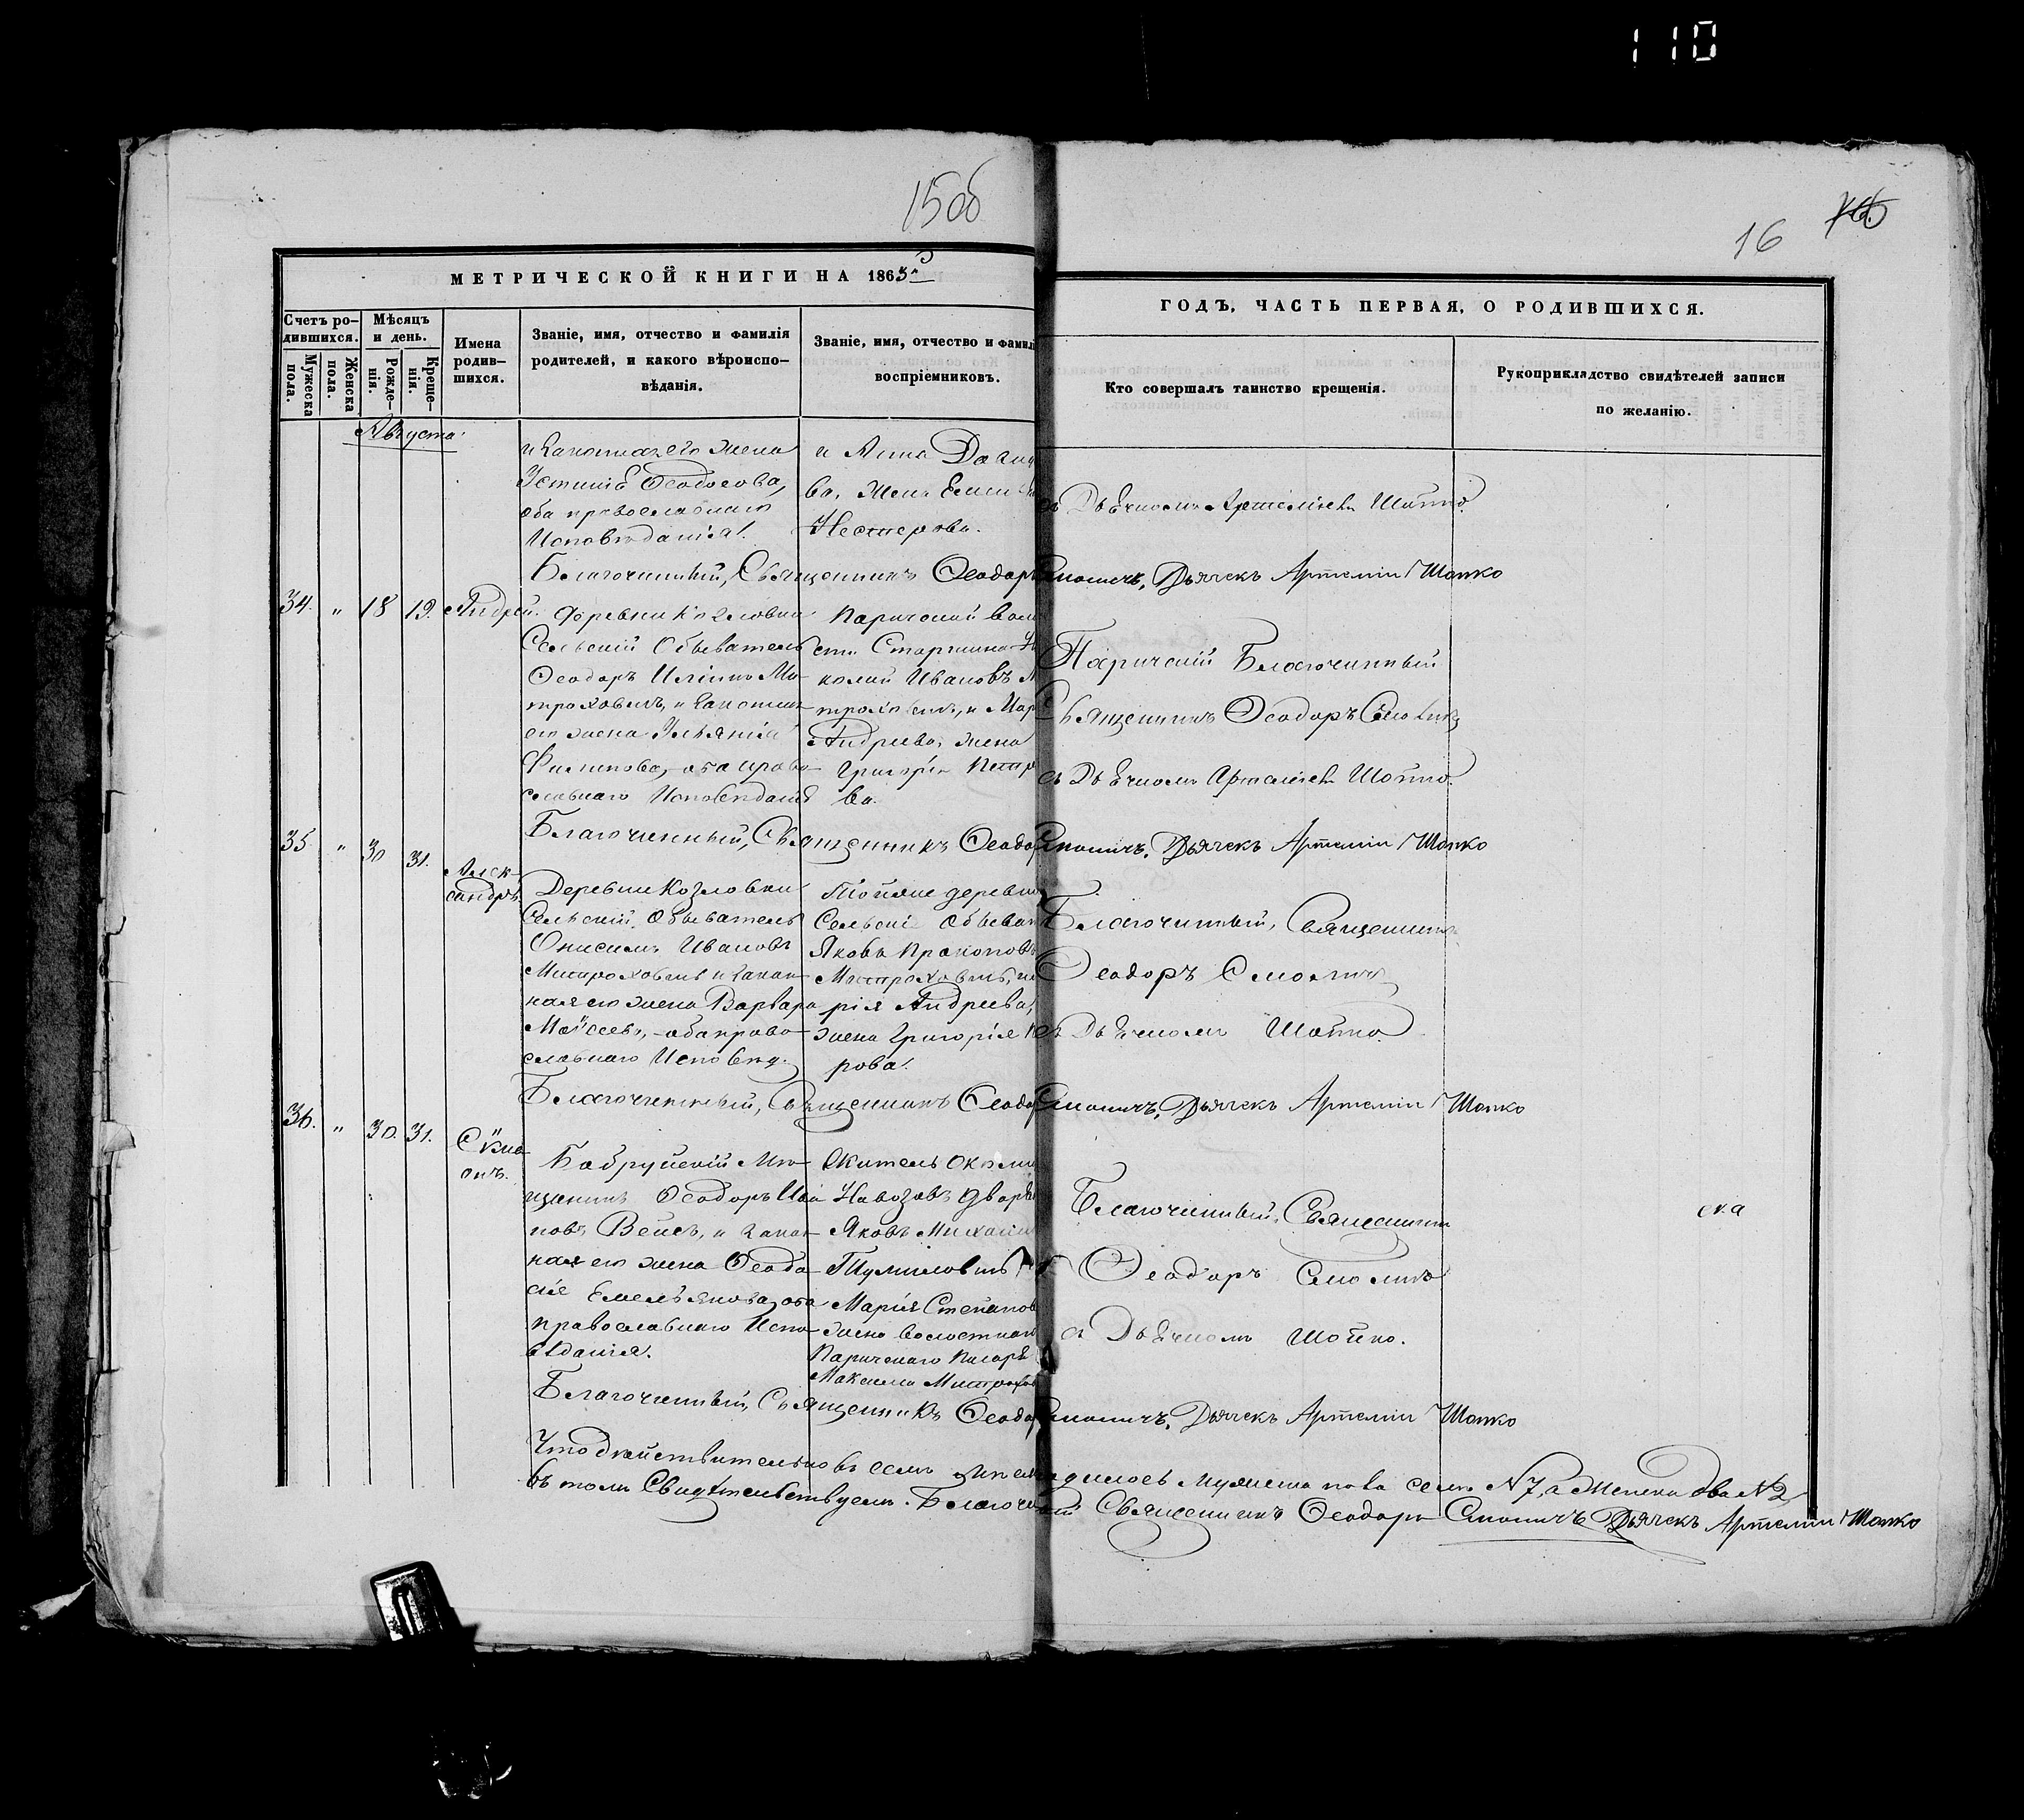 110
15об
16
МЕТРИЧЕСКОЙ КНИГИ НА 1863
ГОДЪ, ЧАСТЬ ПЕРВАЯ, О РОДИВШИХСЯ.
Счетъ ро-
дившихся.
Мужеска
пола.
Женска
пола.
Мѣсяцъ
и день.
Рожде-
нія.
Креще-
нія.
Имена
родив-
шихся.
Званіе, имя, отчество и фамилія
родителей, и какого вѣроиспо-
вѣданія.
Званіе, имя, отчество и фамил
воспріемниковъ.
Кто совершалъ таинство крещенія.
Рукоприкладство свидѣтелей записи
по желанію.
Августа
и законная его жена
Ѳеодосова,
оба православнаго
Исповѣданія.
и Анна
ва, жена
Нестерова.
съ Дьячкомъ Артеміемъ Шопко.
Благочинный, Священникъ Ѳеодоръ Смоличъ, Дьячекъ Артемій Шопко
34. " 18 19. Андрей.
деревни Козловки
Сельскій Обыватель
Ѳеодоръ Ми-
троховичъ, и законная
его жена Ульянія
Филипова, оба право-
славнаго Исповѣданія
Паричской воло
сти Старшина Н
колай Ивановъ М
троховичъ, и Мар
Андреева, жена
Григорія Петро
ва.
Паричскій Благочинный
Священникъ Ѳеодоръ Смоличъ
съ Дьячкомъ Артеміемъ Шопко.
Благочинный, Священникъ Ѳеодоръ Смоличъ, Дьячекъ Артемій Шопко
35 " 30 31. Алек-
сандръ.
Деревни Козловки
Сельскій Обыватель
Онисимъ Ивановъ
Митроховичъ и закон-
ная его жена Варвара
Моисеева, оба право-
славнаго Исповѣд.
Тойже деревни
Сельскій Обыват
Яковъ Прокоповъ
Митроховичъ, и
рія Андреева,
жена Григорія
рова.
Благочинный, Священникъ
Ѳеодоръ Смоличъ
съ Дьячкомъ Шопко.
Благочинный, Священникъ Ѳеодоръ Смоличъ, Дьячекъ Артемій Шопко
36. " 30. 31. Симе-
онъ.
Бобруйскій Мѣ-
щанинъ Ѳеодоръ Ива
новъ Вейсъ, и закон-
ная его жена Ѳеодо-
сія Емельянова, оба
православнаго Испо-
вѣданія.
Житель Околи
Навозовъ дворян
Яковъ Михаил
Тумиловичъ
Марія Степанов
жена волостнаго
Паричскаго Писаря
Максима Митрохов
Благочинный, Священникъ
Ѳеодоръ Смоличъ
съ Дьячкомъ Шопко.
Благочинный, Священникъ Ѳеодоръ Смоличъ, Дьячекъ Артемій Шопко
Что дѣйствительно въ семъ родилось мужеска пола семь N 7, а женска два N 2
въ томъ Свидѣтельствуемъ. Благочинный Священникъ Ѳеодоръ Смоличъ Дьячекъ Артемій Шопко